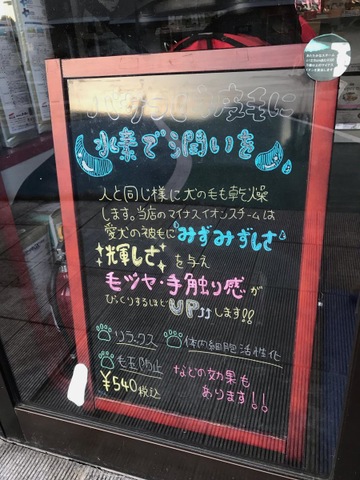 パサつく皮毛に
水素で潤いを
人と同じ様に犬の毛も乾燥
します。当店のマイナスイオンスチームは
愛犬の被毛にみずみずしさ
輝しさを与え
毛ツヤ・手触り感が
びっくりするほどUPします!!
リラックス 体内細胞活性化
毛玉防止 などの効果も
¥540税込 あります!!